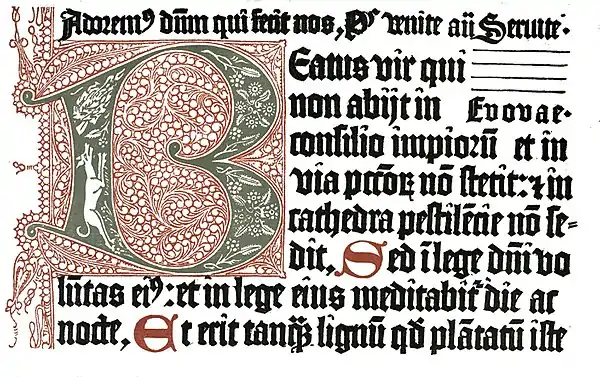 Adorem⁹ dn̄m qui fecit nos, Ps̄ venite aīī Seruite·
Beatus vir qui
non abijt in Evovae·
consilio impiorū et in
via pcc̄oꝝ nō stetit: ⁊ in
cathedra pestilēcie nō se-
dit, Sed ī lege dn̄i vo
lūtas ei⁹: et in lege eius meditabit̄ die ac
nocte, Et erit tanqꝫ lignū qd̄ plātatū iste